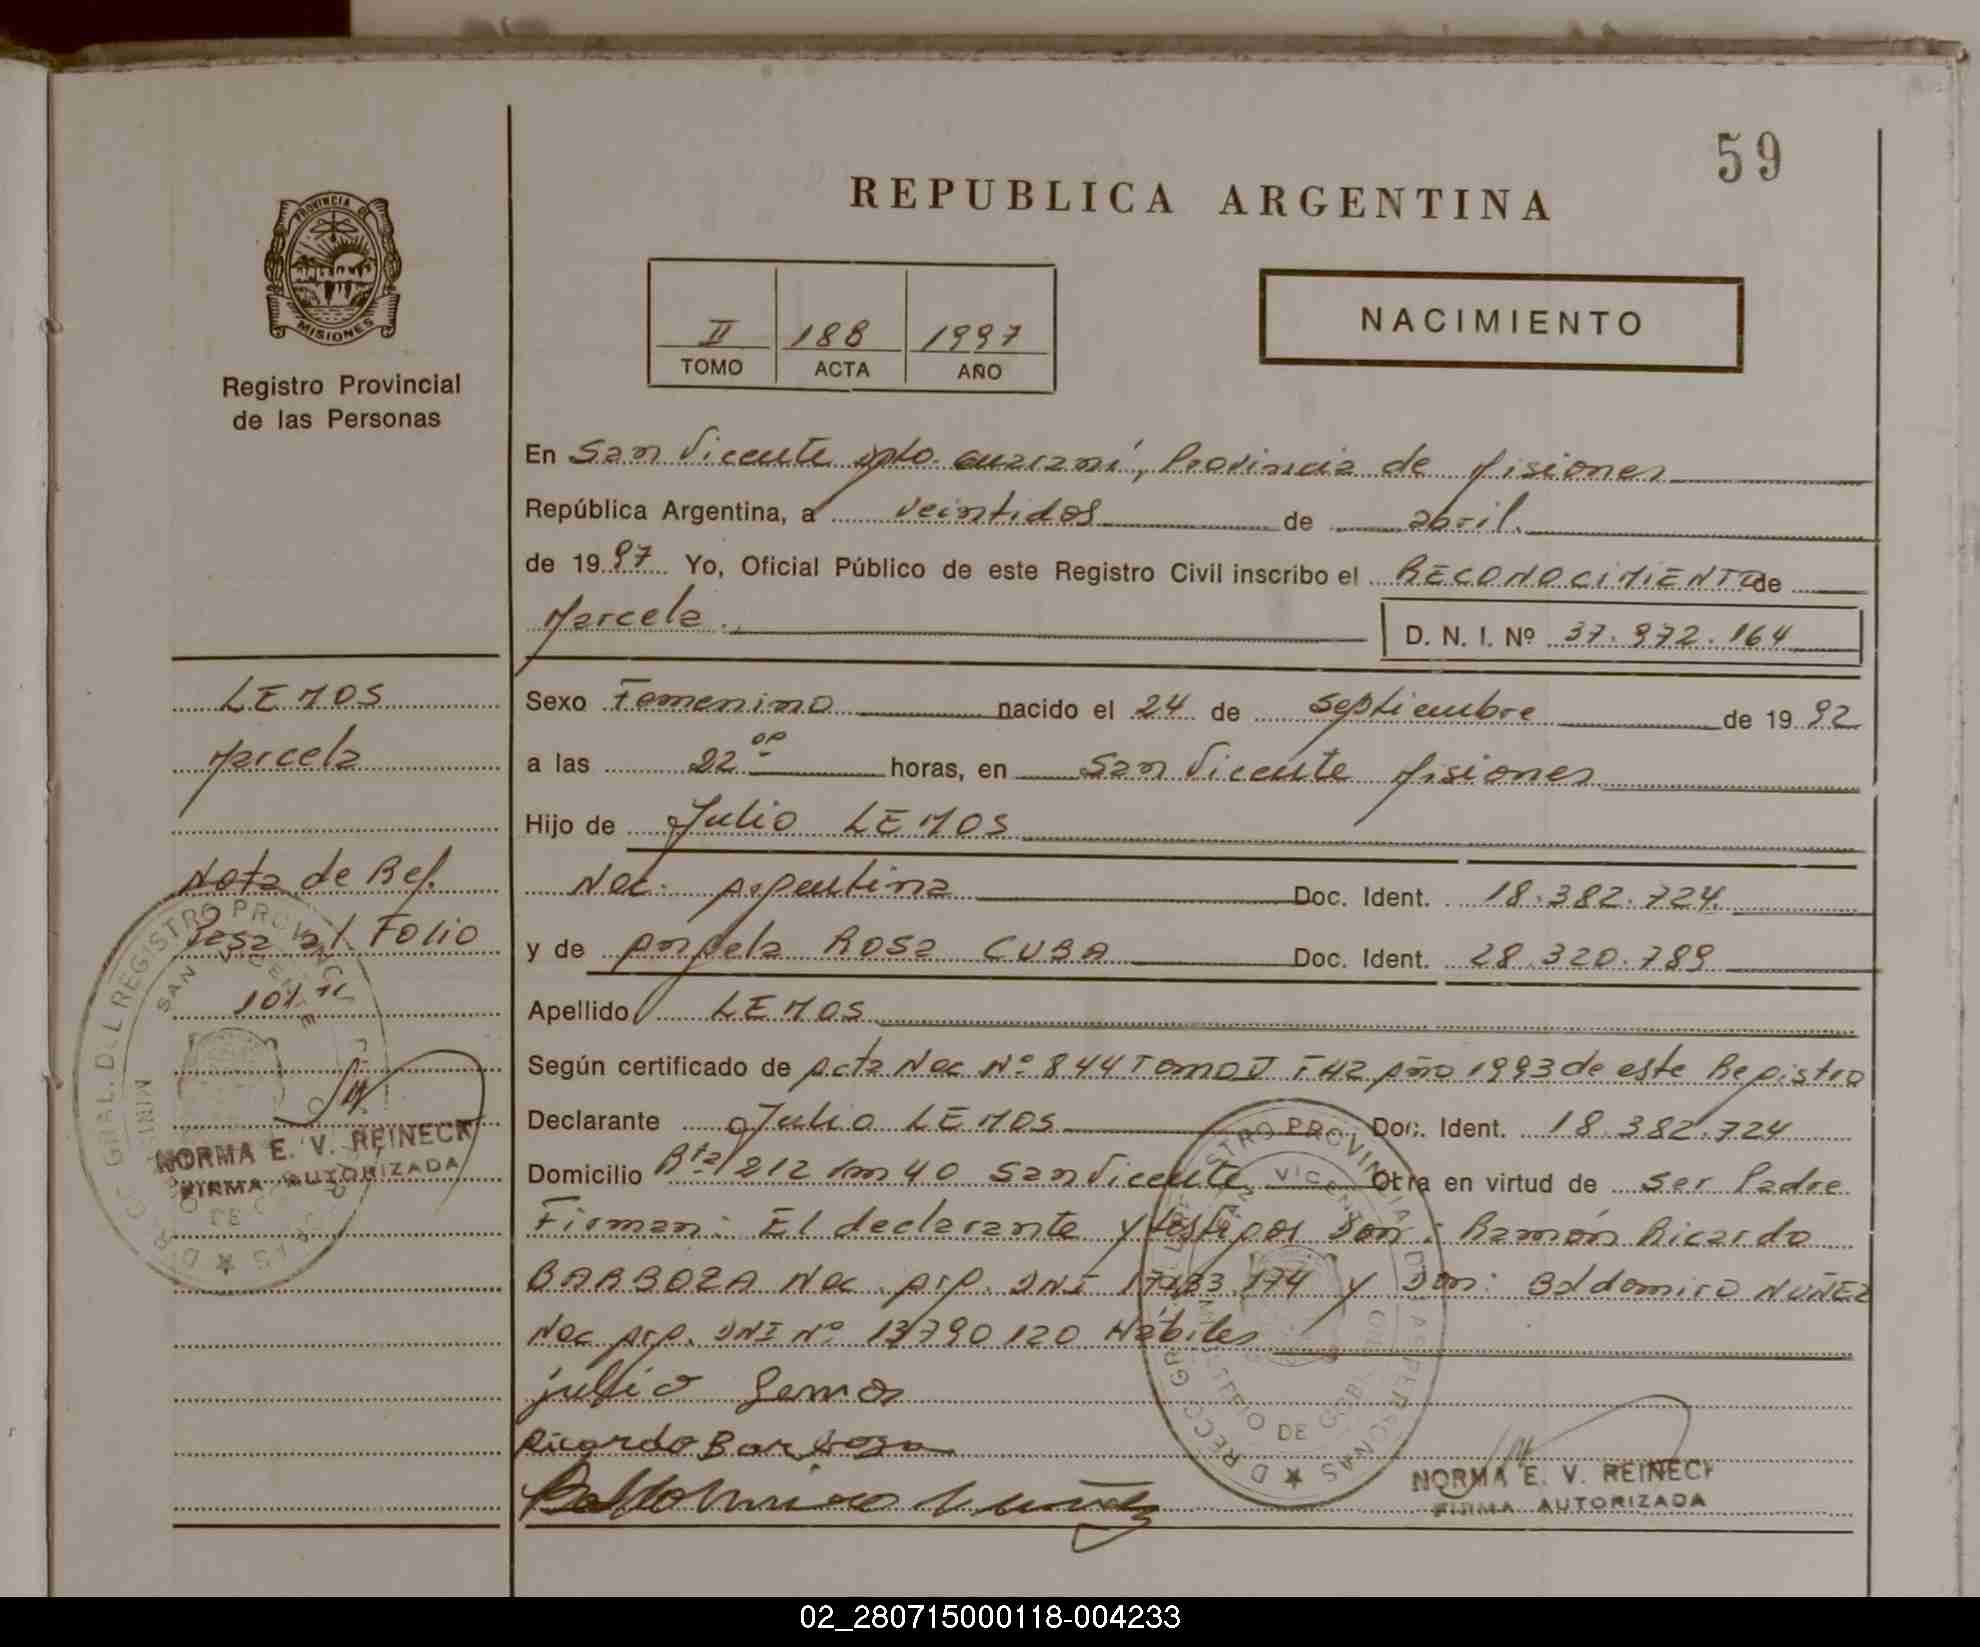 59
REPUBLICA ARGENTINA
PROVINCIA DE
MISIONES
Registro Provincial
de las Personas
II 188 1997
TOMO ACTA AÑO
NACIMIENTO
En San Vicente Dpto. Guaraní, Provincia de Misiones
República Argentina, a veintidos de abril.
de 1997 Yo, Oficial Público de este Registro Civil inscribo el RECONOCIMIENTO de
Marcela.
D. N. I. Nº 37.972.164
LEMOS
Marcela
Nota de Ref.
Pasa al Folio
101
NORMA E. V. REINECK
FIRMA AUTORIZADA
Sexo Femenino nacido el 24 de septiembre de 1992
a las 22 00 horas, en San Vicente Misiones
Hijo de Julio LEMOS
Nac. Argentina Doc. Ident. 18.382.724.
y de Angela ROSA CUBA Doc. Ident. 28.320.789
Apellido LEMOS
Según certificado de Acta Nac Nº 844 TOMO F42 Año 1993 de este Registro
Declarante Julio LEMOS Doc. Ident. 18.382.724
Domicilio Rta 212 km 40 San Vicente Otra en virtud de ser Padre
Firman: El declarante y testigos Don: Ramón Ricardo
BARBOZA Nac. Arg. DNI 174 y Don: Baldomiro NUÑEZ
Nac Arg. DNI Nº 13790120 Hábiles
julio Lemos
Ricardo Barboza
NORMA E. V. REINECK
FIRMA AUTORIZADA
02_280715000118-004233